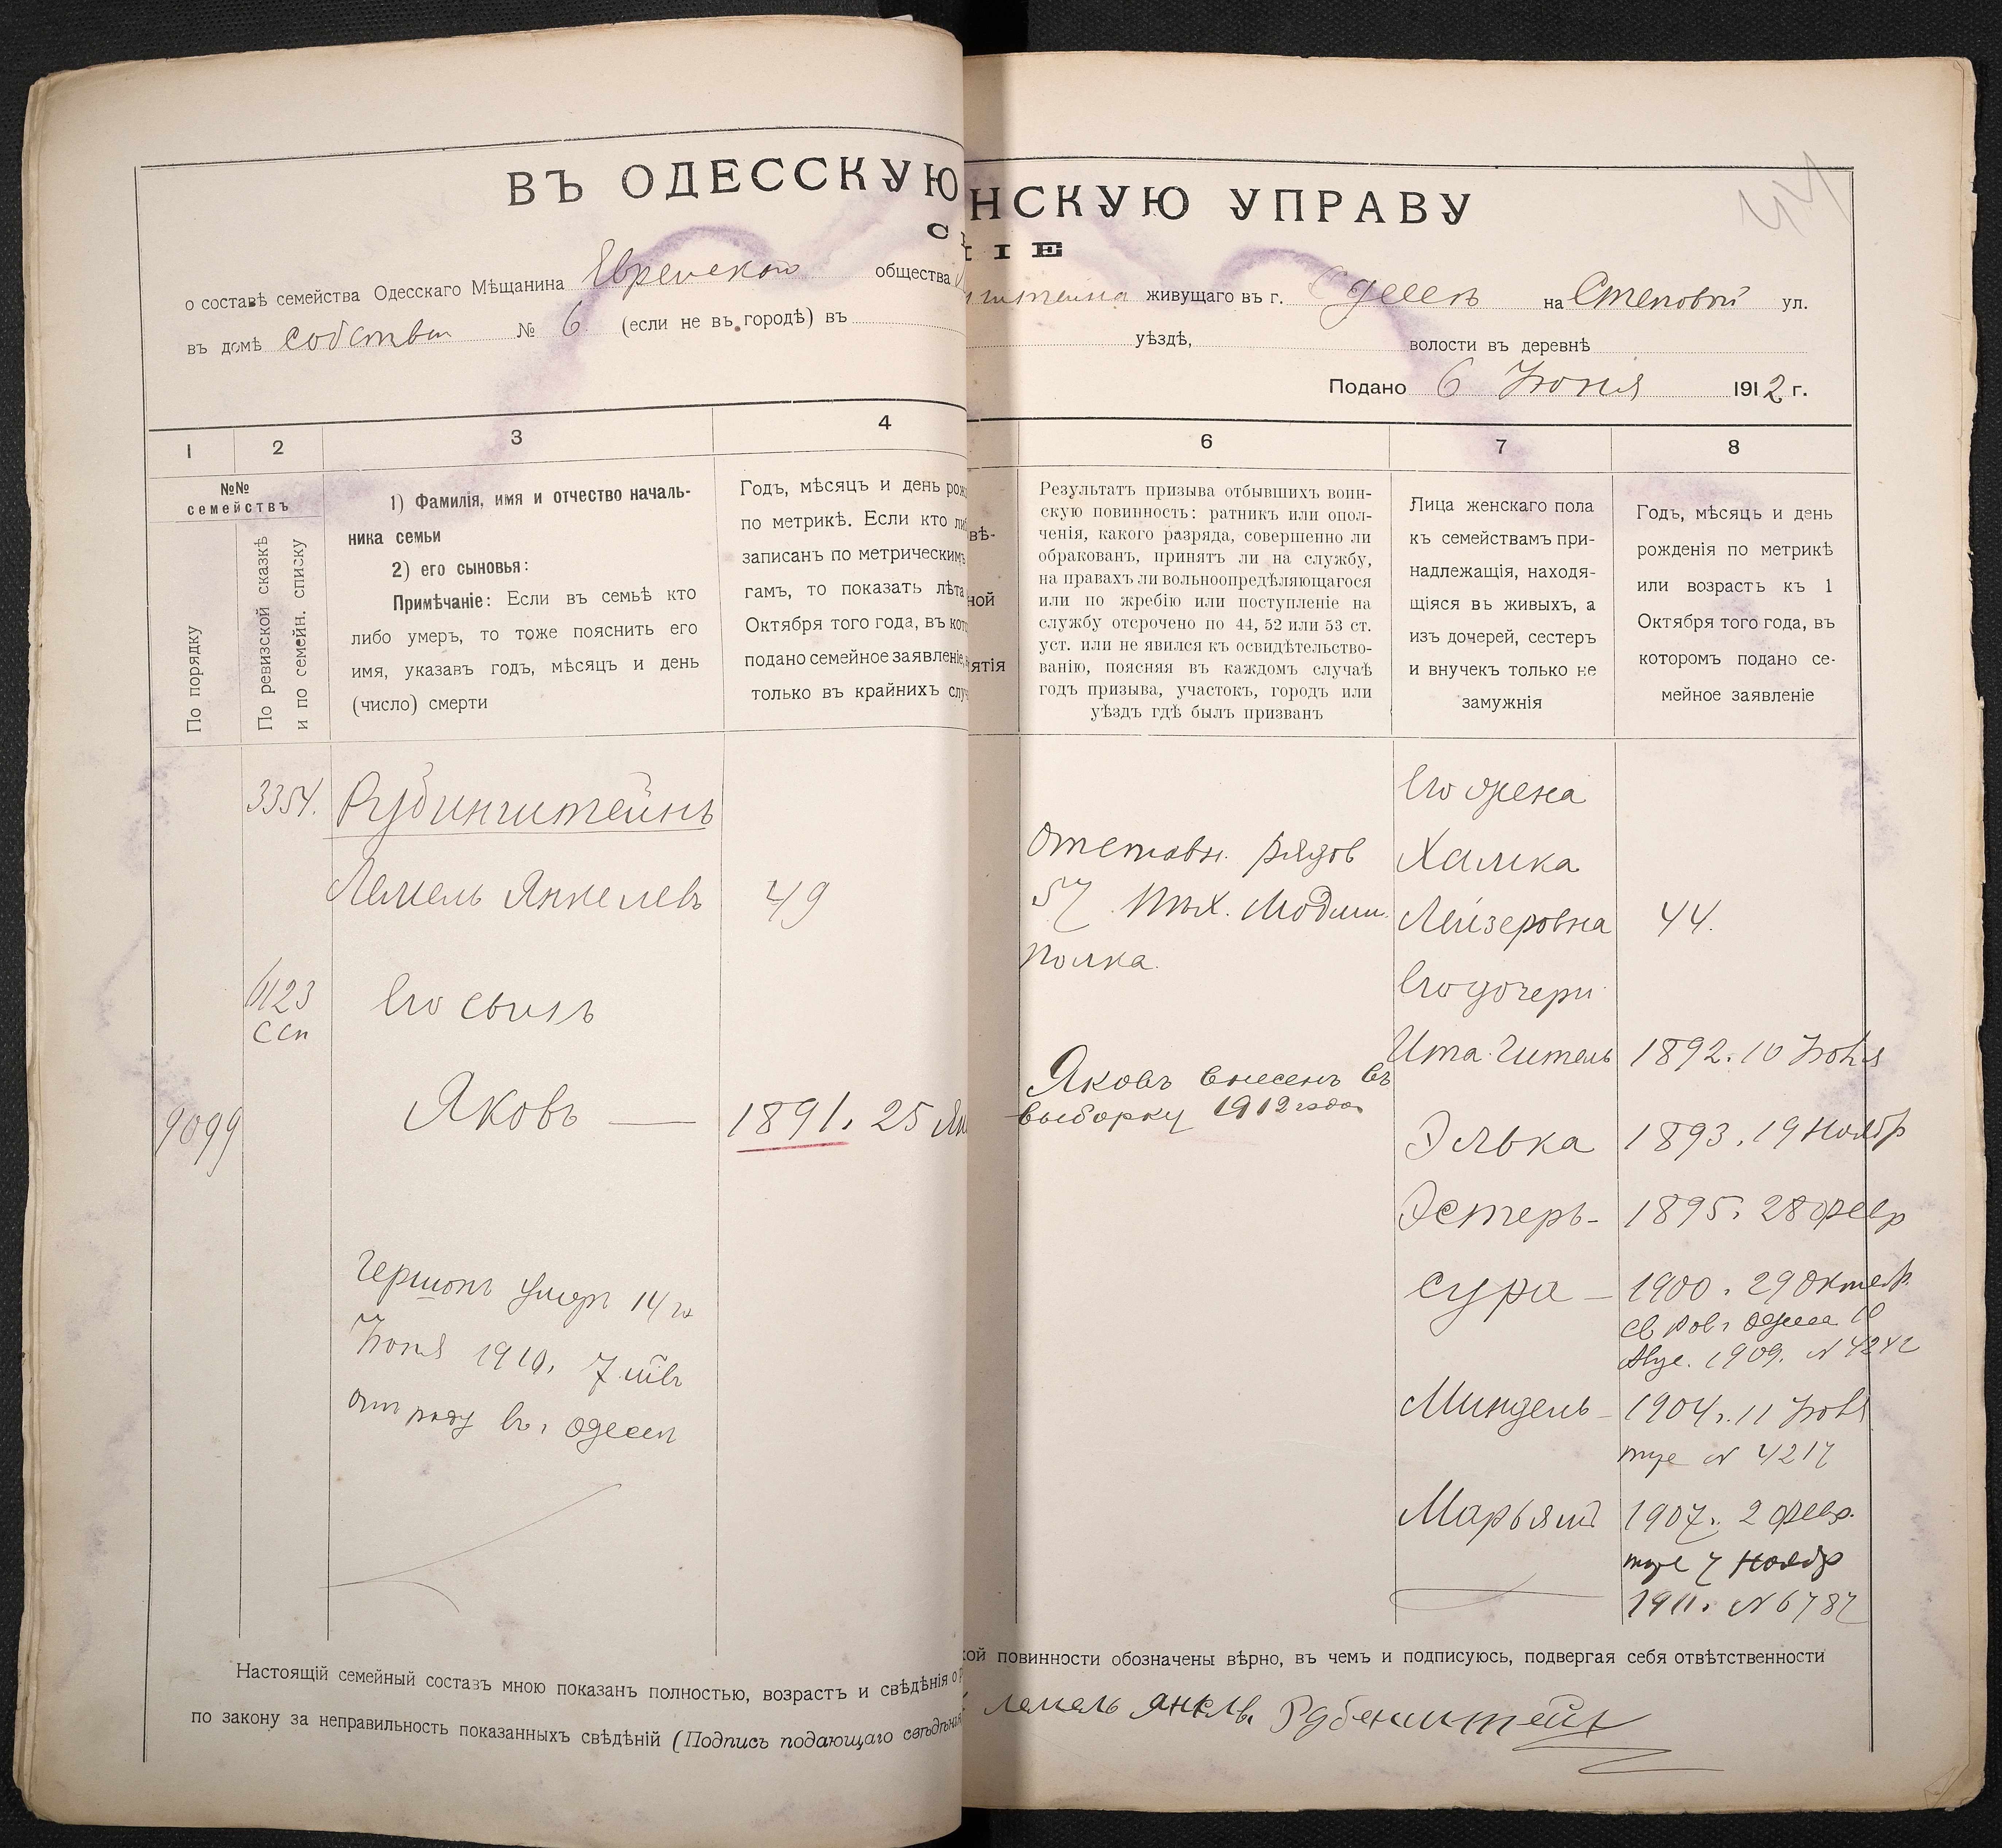 ВЪ ОДЕССКУЮ
НСКУЮ УПРАВУ
ІЕ
о составѣ семейства Одесскаго Мѣщанина Еврейскаго общества
живущаго въ г. Одессѣ на Степовой ул.
въ домѣ собствен № 6 (если не въ городѣ) въ
уѣздѣ, волости въ деревнѣ
Подано 6 Іюня 1912 г.
1
2
3
4
6
7
8
№№
семействъ
По порядку
По ревизской сказкѣ
и по семейн. списку
1) Фамилія, имя и отчество началь-
ника семьи
2) его сыновья:
Примѣчаніе: Если въ семьѣ кто
либо умеръ, то тоже пояснить его
имя, указавъ годъ, мѣсяцъ и день
(число) смерти
Годъ, мѣсяцъ и день рож
по метрикѣ. Если кто ли
записанъ по метрическимъ
гамъ, то показать лѣта
Октября того года, въ кот
подано семейное заявленіе,
только въ крайнихъ слу
вѣ-
ной
ятія
Результатъ призыва отбывшихъ воин-
скую повинность: ратникъ или опол-
ченія, какого разряда, совершенно ли
обракованъ, принятъ ли на службу,
на правахъ ли вольноопредѣляющагося
или по жребію или поступленіе на
службу отсрочено по 44, 52 или 53 ст.
уст. или не явился къ освидѣтельство-
ванію, поясняя въ каждомъ случаѣ
годъ призыва, участокъ, городъ или
уѣздъ гдѣ былъ призванъ
Лица женскаго пола
къ семействамъ при-
надлежащія, находя-
щіяся въ живыхъ, а
изъ дочерей, сестеръ
и внучекъ только не
замужнія
Годъ, мѣсяцъ и день
рожденія по метрикѣ
или возрастъ къ 1
Октября того года, въ
которомъ подано се-
мейное заявленіе
3354. Рубинштейнъ
Лемель Янкелевъ 49
6123
ссп
Его сынъ
9099 Яковъ — 1891. 25 Ян
Гершонъ умеръ 14 го
Іюня 1910. 7 лѣтъ
отъ роду въ г. Одессѣ
отставн. рядов
57 пѣх. Модлин.
полка.
Яковъ внесенъ въ
выборку 1912 года
Его жена
Хамка
Лейзеровна 44.
Его дочери
Ита-Гитель 1892. 10 Іюля
Элька 1893. 19 Ноябр
Эстеръ- 1895. 28 февр
Сура — 1900. 29 Октяб.
св пов. Одесса 10
Авг. 1909. № 4242
Миндель - 1904. 11 Іюля
тоже № 4217
Марьямъ 1907. 2 февр.
тоже 7 Ноябр
1911. № 6787
Настоящій семейный составъ мною показанъ полностью, возрастъ и свѣдѣнія о
ой повинности обозначены вѣрно, въ чемъ и подписуюсь, подвергая себя отвѣтственности
по закону за неправильность показанныхъ свѣдѣній (Подпись подающаго свѣдѣнія
лемель янклв. Рубенштейн